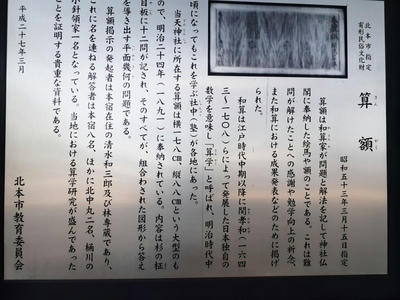 北本市指定
有形民俗文化財
算額
昭和五十三年三月十五日指定
算額は和算家が問題と解法を記して神社仏
閣に奉納した絵馬や額のことである。これは難
問が解けたことへの感謝や勉学向上の祈念、
また和算における成果発表などのために掲げ
られた。
和算は江戸時代中期以降に関孝和(一六四
三～一七〇八)らによって発展した日本独自の
数学を意味し「算学」と呼ばれ、明治時代中
頃になってもこれを学ぶ社中(塾)が各地にあった。
当天神社に所在する算額は横一七八㎝、縦八八㎝という大型のも
ので、明治二十四年(一八九一)に奉納されている。内容は杉の柾
目板に十二問が記され、そのすべてが、組合わされた図形から答え
を導き出す平面幾何の問題である。
算額掲示の発起者は本宿在住の清水和三郎及び林専蔵であり、
これに名を連ねる解答者は本宿八名、ほかに北中丸二名、桶川の
小針領家一名となっている。当地における算学研究が盛んであった
ことを証明する貴重な資料である。
平成二十七年三月
北本市教育委員会